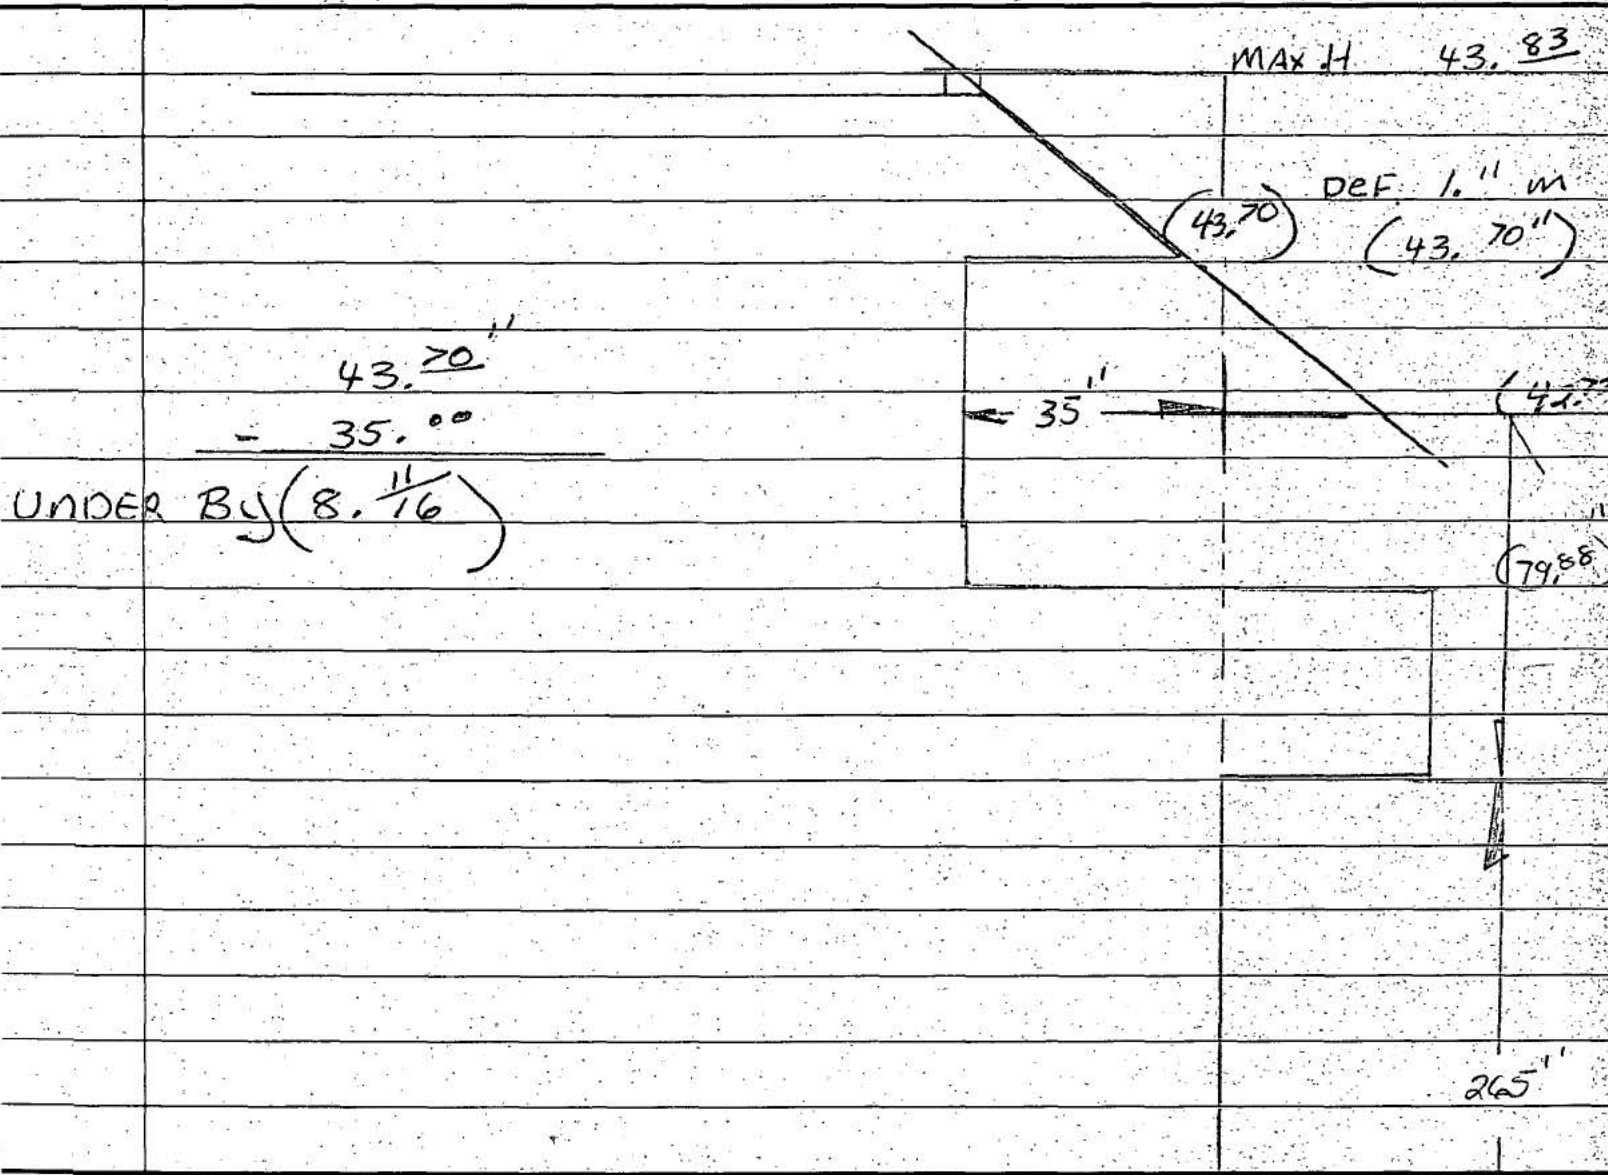 MAX H 43.83
DEF. 1." in
(43.70)
(43.70")
43.70"
35"
- 35.00
UNDER By (8. 11/16)
(79.88")
265"